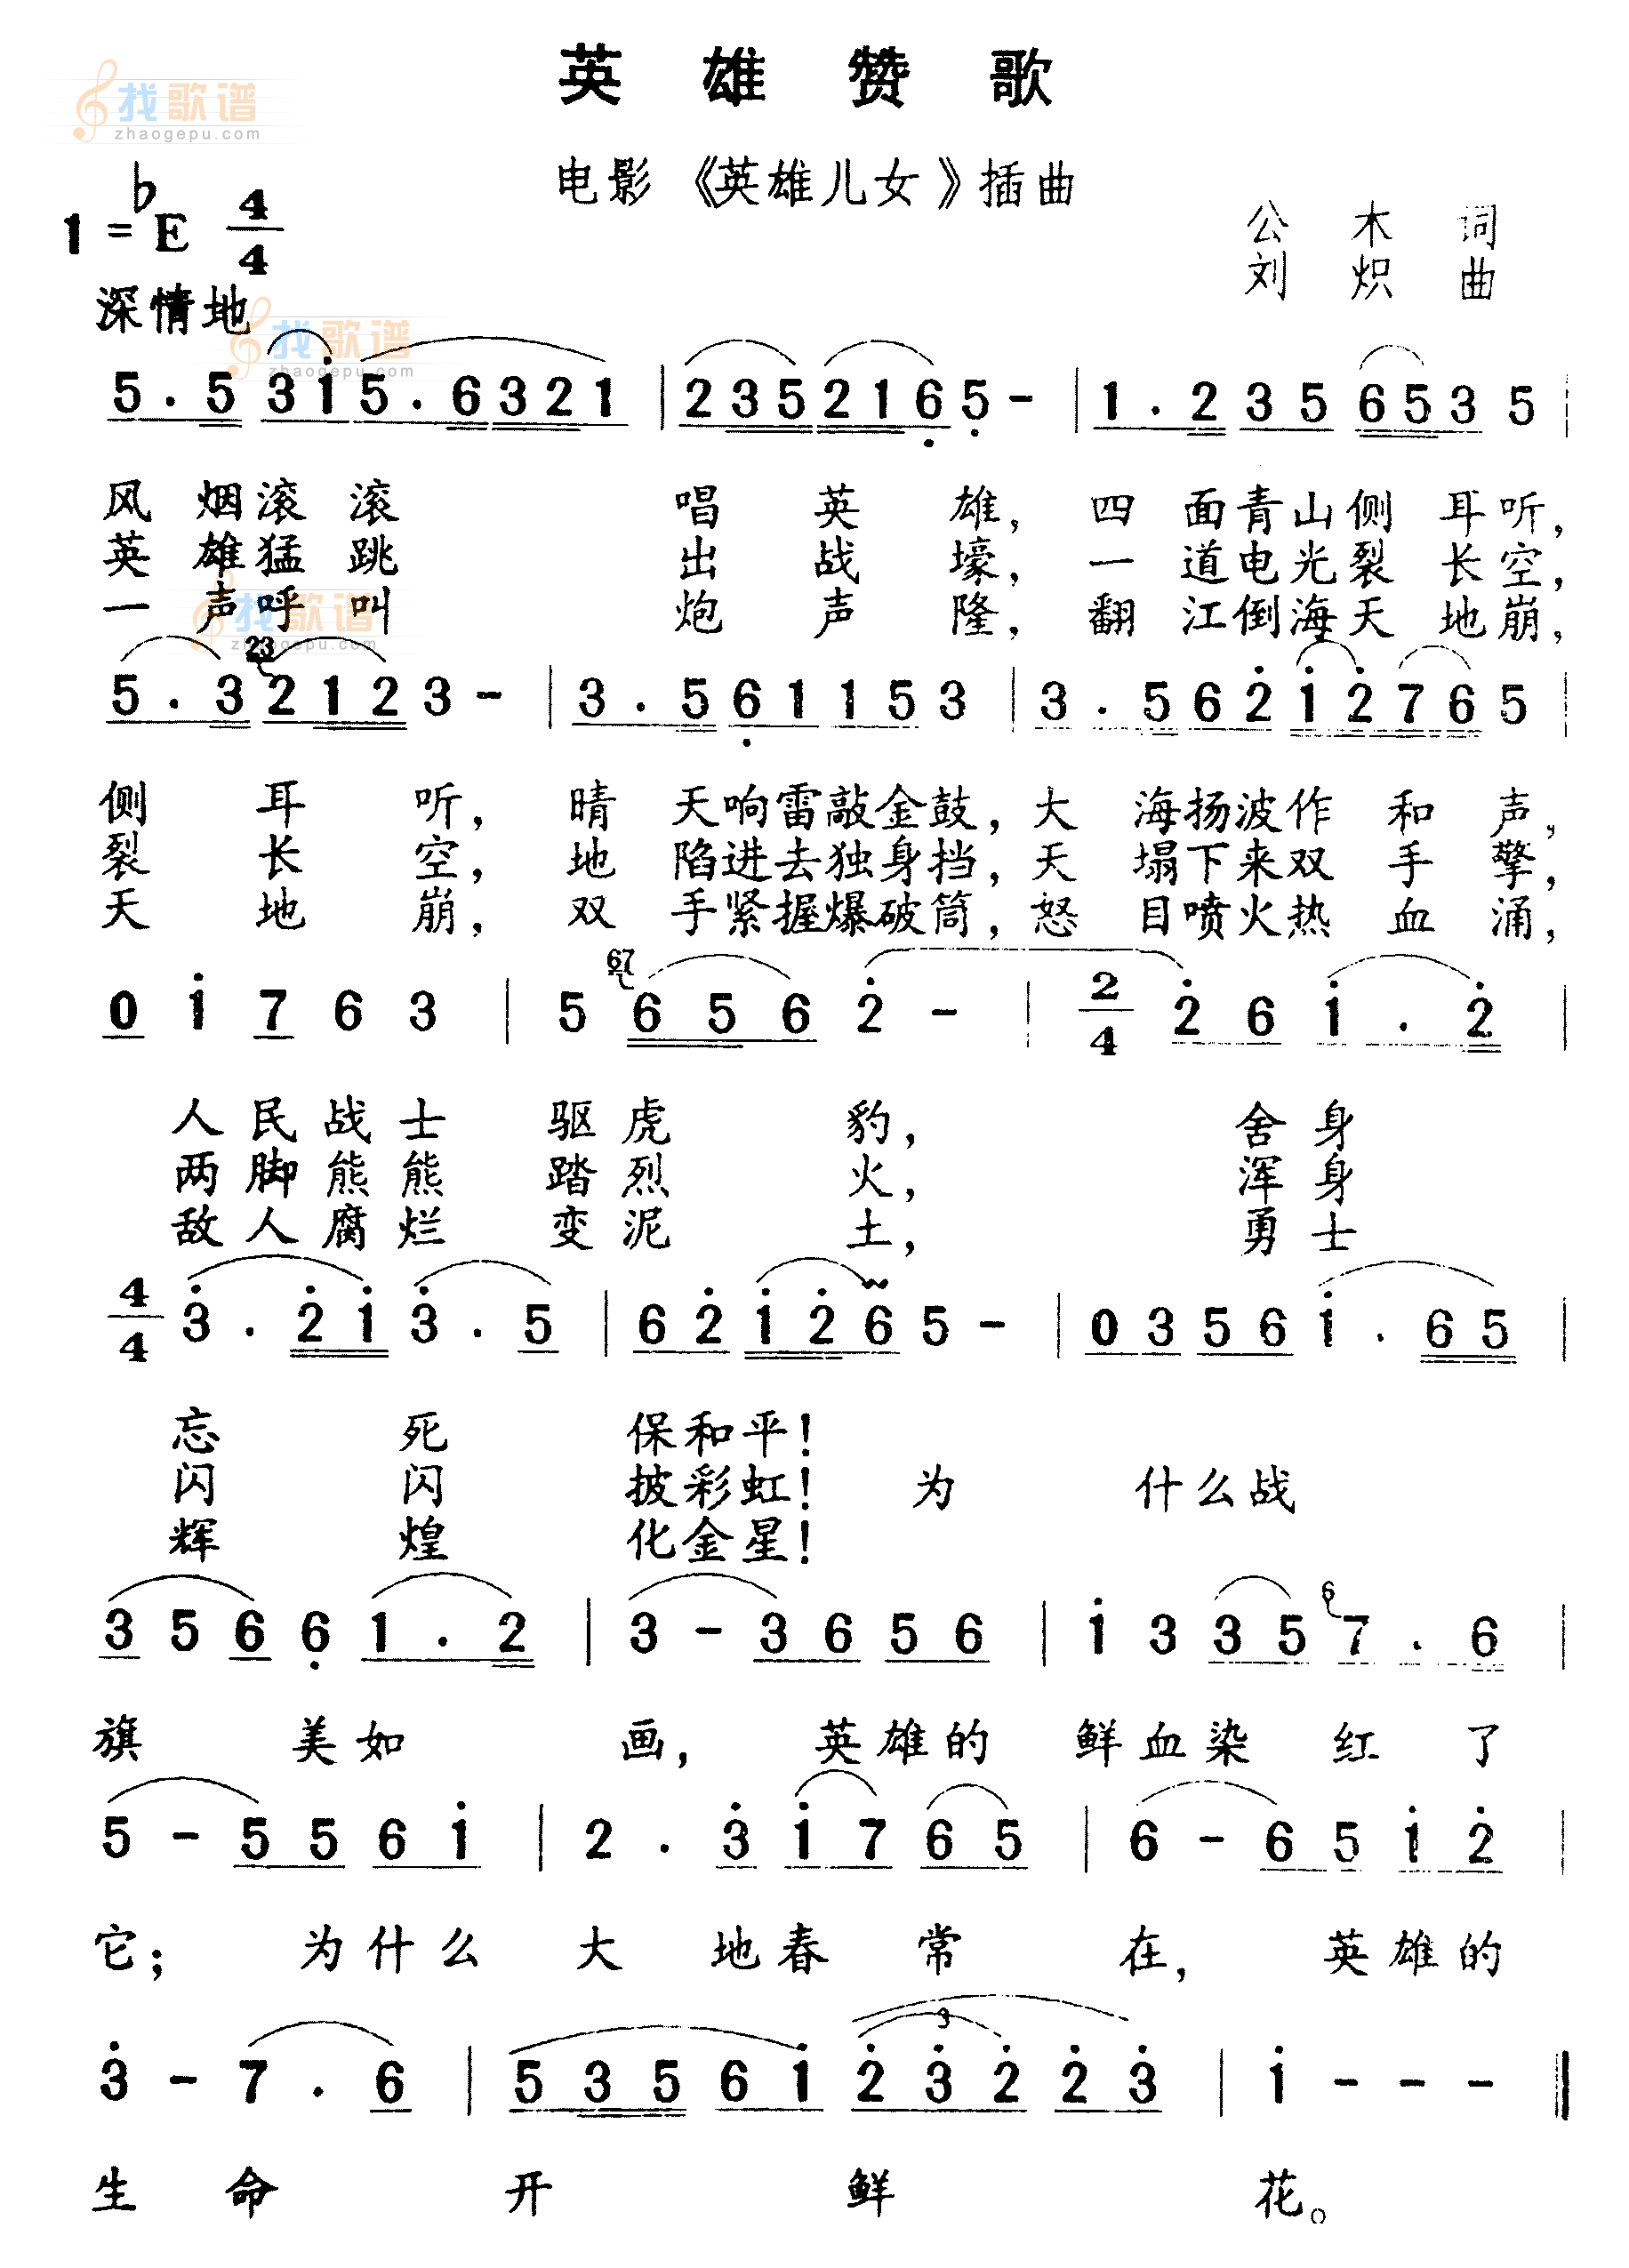 英雄赞歌
找歌谱
zhaogepu.com
电影《英雄儿女》插曲
1=♭E 4/4
公木词
刘炽曲
深情地
找歌谱
zhaogepu.com
5.5 3 1 5.6 3 2 1 | 2 3 5 2 1 6 5 - | 1.2 3 5 6 5 3 5 |
风烟滚滚 唱英雄, 四面青山侧耳听,
英雄猛跳 出战壕, 一道电光裂长空,
一声呼叫 炮声隆, 翻江倒海天地崩,
找歌谱
zhaogepu.com
23
5.3 2 1 2 3 - | 3.5 6 1 1 5 3 | 3.5 6 2 1 2 7 6 5 |
侧耳听, 晴天响雷敲金鼓, 大海扬波作和声,
裂长空, 地陷进去独身挡, 天塌下来双手擎,
天地崩, 双手紧握爆破筒, 怒目喷火热血涌,
67
0 1 7 6 3 | 5 6 5 6 2 - | 2/4 2 6 1.2 |
人民战士驱虎豹, 舍身
两脚熊熊踏烈火, 浑身
敌人腐烂变泥土, 勇士
4/4 3.2 1 3.5 | 6 2 1 2 6 5 - | 0 3 5 6 1.6 5 |
忘死保和平!
闪闪披彩虹! 为什么战
辉煌化金星!
6
3 5 6 6 1.2 | 3 - 3 6 5 6 | 1 3 3 5 7.6 |
旗美如画, 英雄的鲜血染红了
5 - 5 5 6 1 | 2.3 1 7 6 5 | 6 - 6 5 1 2 |
它; 为什么大地春常在, 英雄的
3
3 - 7.6 | 5 3 5 6 1 2 3 2 2 3 | 1 - - - ‖
生命开鲜花。